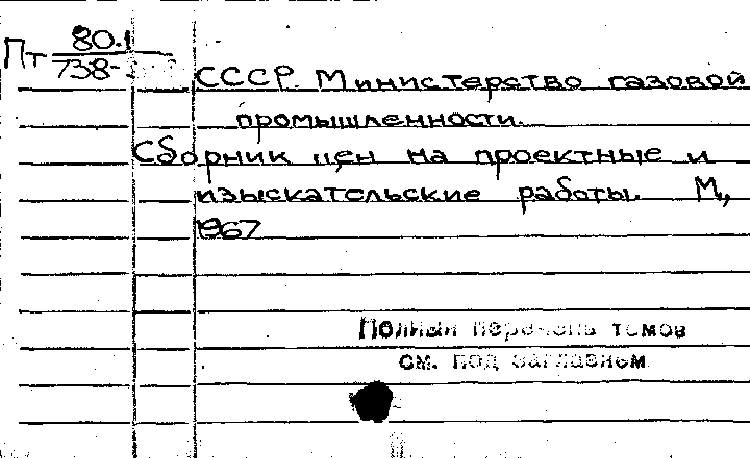 Пт 80.1
738-
СССР. Министерство газовой
промышленности.
Сборник цен на проектные и
изыскательские работы. М,
1967
Полный перечень томов
см. под заглавием